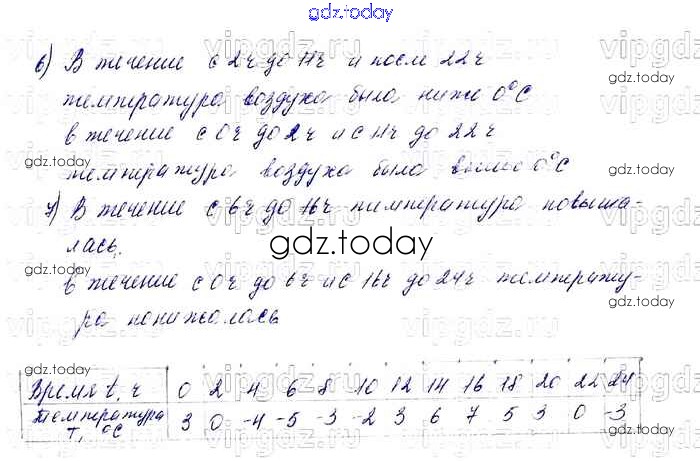 gdz.today
6) В течение с 2ч до 11ч и после 22ч
температура воздуха была ниже 0°С
в течение с 0ч до 2ч и с 11ч до 22ч
температура воздуха была выше 0°С
7) В течение с 6ч до 16ч температура повыша-
лась.
gdz.today
в течение с 0ч до 6ч и с 16ч до 24ч температу-
ра понижалась
Время t, ч 0 2 4 6 8 10 12 14 16 18 20 22 24
температура T, °С 3 0 -4 -5 -3 -2 3 6 7 5 3 0 -3
vipgdz.ru
gdz.today